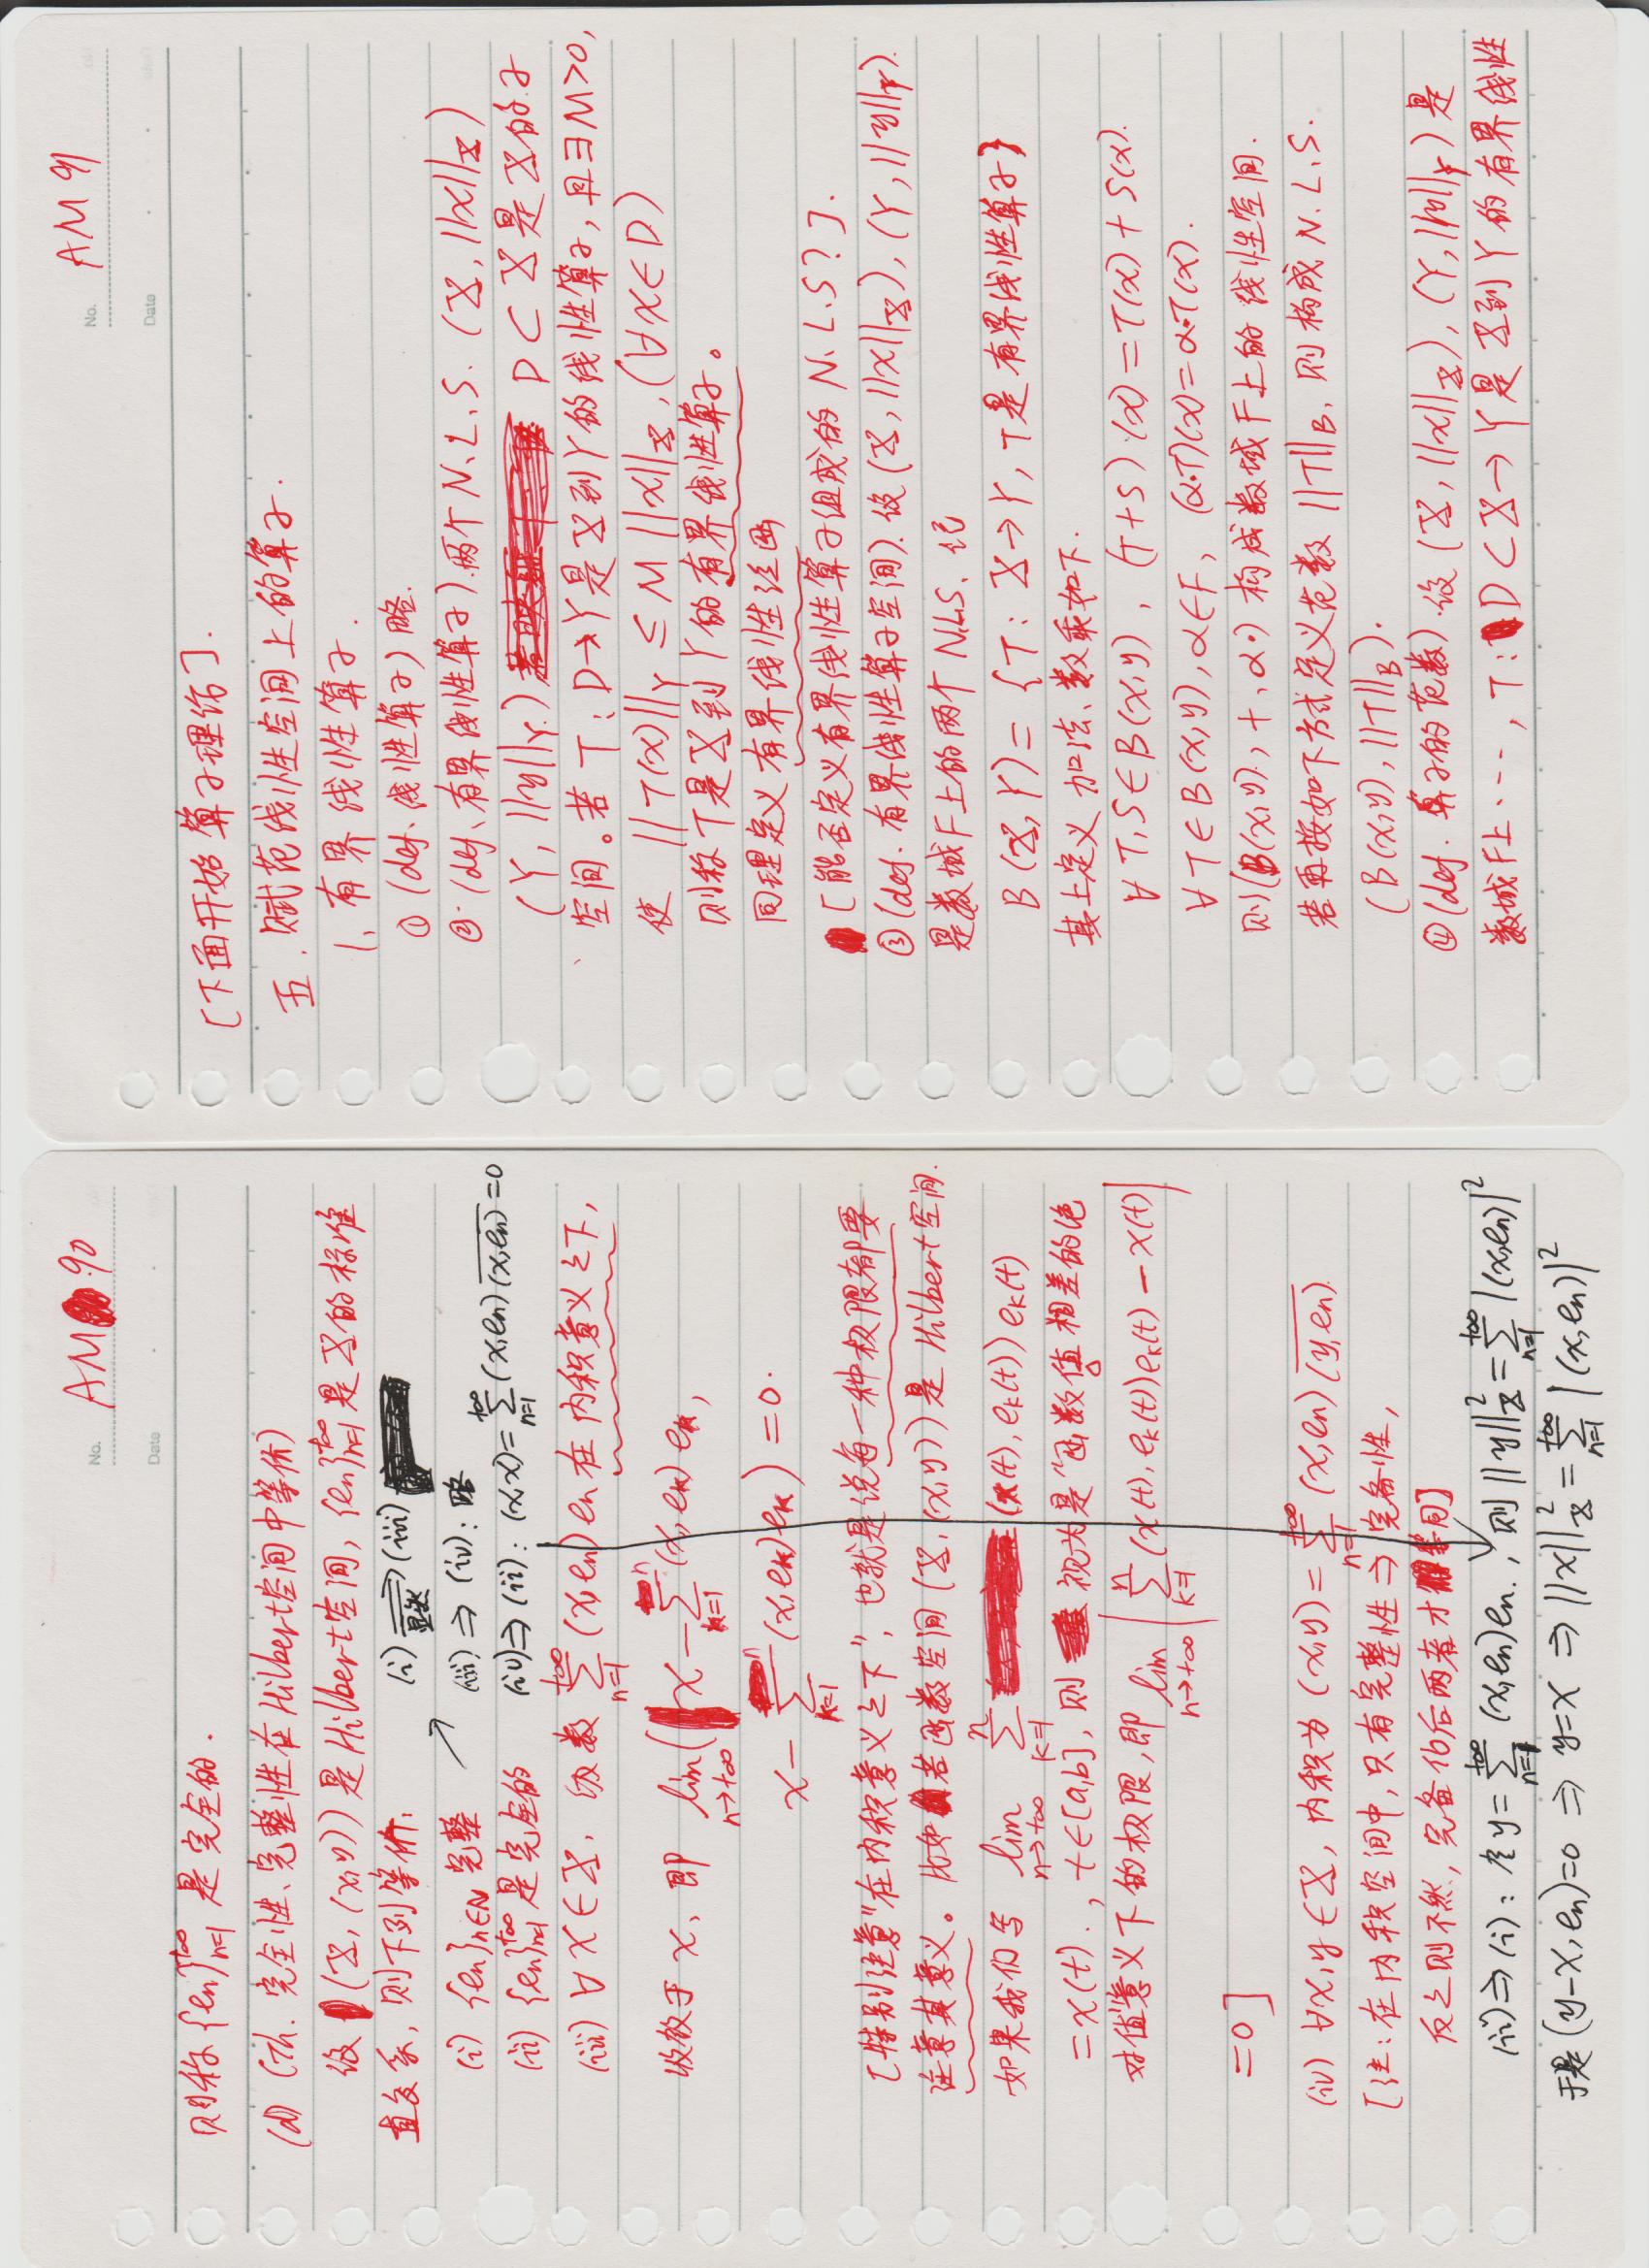 No. AM 90
Date
则称 {en}_{n=1}^{+∞} 是完全的.
(d) (Th. 完全性、完整性在Hilbert空间中等价)
设 (X, (x,y)) 是Hilbert空间, {en}_{n=1}^{+∞} 是 X 的标准
直交系, 则下列等价:
(i) {en}_{n∈N} 完整
(ii) {en}_{n=1}^{+∞} 是完全的
(i) ⟹ (iii)
显然
(iii) ⇒ (iv): 略
(iv) ⇒ (ii): (x,x) = ∑_{n=1}^{+∞} (x,en) \overline{(x,en)} = 0
(iii) ∀ x ∈ X, 级数 ∑_{n=1}^{+∞} (x,en) en 在内积意义之下,
收敛于 x, 即 lim_{n→+∞} ( x − ∑_{k=1}^{n} (x,ek) ek,
x − ∑_{k=1}^{n} (x,ek) ek ) = 0.
[特别注意“在内积意义之下”, 也就是说每一种极限都要
注意其意义。比如若函数空间 (X, (x,y)) 是 Hilbert空间.
如果我们写 lim_{n→+∞} ∑_{k=1}^{n} (x(t), ek(t)) ek(t)
= x(t)., t∈[a,b], 则视为是“函数值相差的绝
对值”意义下的极限, 即 lim_{n→+∞} | ∑_{k=1}^{n} (x(t), ek(t)) ek(t) − x(t) |
= 0 ]
(iv) ∀x,y ∈ X, 内积为 (x,y) = ∑_{n=1}^{+∞} (x,en) \overline{(y,en)}.
[注: 在内积空间中, 只有完整性 ⇒ 完备性,
反之则不然, 完备化后两者才等同]
(ii) ⇒ (i): 令 y = ∑_{n=1}^{+∞} (x,en) en., 则 ||y||_X^2 = ∑_{n=1}^{+∞} |(x,en)|^2
于是 (y−x, en) = 0 ⇒ y = x ⇒ ||x||_X^2 = ∑_{n=1}^{+∞} |(x,en)|^2
No. AM 91
Date
[下面开始算子理论].
五. 赋范线性空间上的算子.
1. 有界线性算子.
① (def. 线性算子) 略.
② (def. 有界线性算子). 两个 N.L.S. (X, ||x||_X)
(Y, ||y||_Y.) D ⊂ X 是 X 的子
空间。若 T: D→Y 是 X 到 Y 的线性算子, 且∃M>0,
使 ||T(x)||_Y ≤ M ||x||_X, (∀x∈D)
则称 T 是 X 到 Y 的有界线性算子。
同理定义有界线性泛函
[能否定义有界线性算子组成的 N.L.S?].
③ (def. 有界线性算子空间). 设 (X, ||x||_X), (Y, ||y||_Y).
是数域F上的两个 N.L.S. 记
B(X,Y) = {T: X→Y, T是有界线性算子}
其上定义加法、数乘如下.
∀ T,S ∈ B(x,y), (T+S)·(x) = T(x) + S(x).
∀ T ∈ B(x,y), α∈F, (α·T)(x) = α·T(x).
则 (B(x,y), +, α·) 构成数域F上的线性空间.
若再按如下方式定义范数 ||T||_B, 则构成 N.L.S.
(B(x,y), ||T||_B).
④ (def. 算子的范数). 设 (X, ||x||_X), (Y, ||y||_Y) 是
数域F上 ···, T: D⊂X→Y 是 X 到 Y 的有界线性